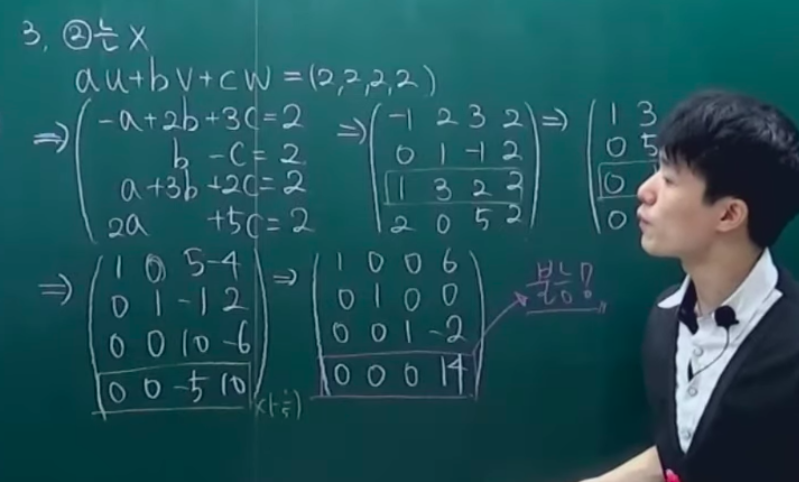 3. ②는 X
au+bv+cw=(2,2,2,2)
⇒ -a+2b+3c=2
b -c=2
a+3b+2c=2
2a +5c=2
⇒ -1 2 3 2
0 1 -1 2
1 3 2 2
2 0 5 2
⇒ 1 3
0 5
0
0
⇒ 1 0 5 -4
0 1 -1 2
0 0 10 -6
0 0 -5 10
×(-1/5)
⇒ 1 0 0 6
0 1 0 0
0 0 1 -2
0 0 0 14
불능!